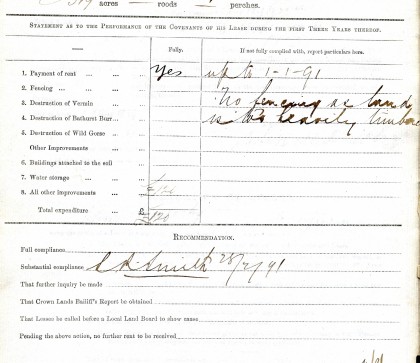 acres roods perches.
STATEMENT AS TO THE PERFORMANCE OF THE COVENANTS OF HIS LEASE DURING THE FIRST THREE YEARS THEREOF.
Fully. If not fully complied with, report particulars here.
1. Payment of rent ... Yes up to 1-1-91
2. Fencing ...
3. Destruction of Vermin ... No fencing as land
4. Destruction of Bathurst Burr... is too heavily timbered
5. Destruction of Wild Gorse ...
Other Improvements ...
6. Buildings attached to the soil
7. Water storage ...
8. All other Improvements ...
Total expenditure ... £ 120
RECOMMENDATION.
Full compliance
Substantial compliance Smith 25/2/91
That further inquiry be made
That Crown Lands Bailiff's Report be obtained
That Lessee be called before a Local Land Board to show cause
Pending the above action, no further rent to be received